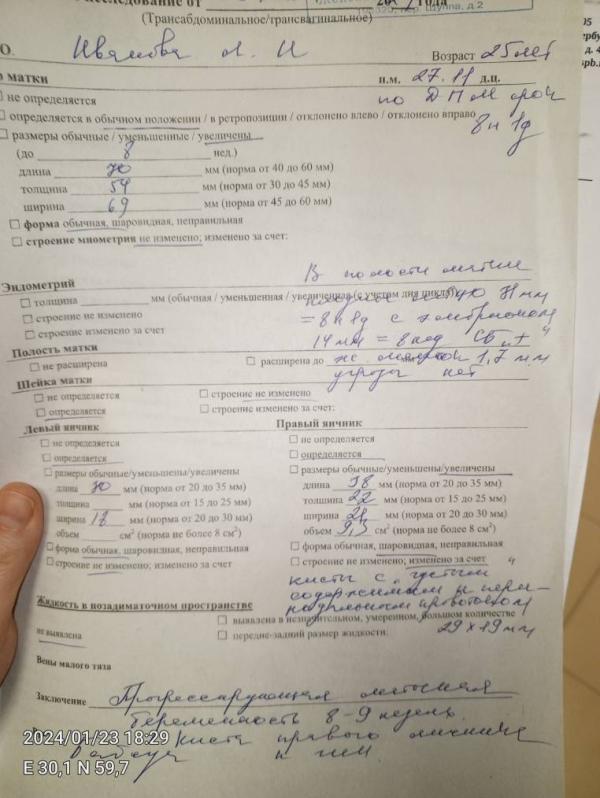 исследование от 20 года
(Трансабдоминальное/трансвагинальное)
О. Иванова Л. И Возраст 25 лет
о матки п.м. 27.11 д.ц.
не определяется по ДПМ срок
определяется в обычном положении / в ретропозиции / отклонено влево / отклонено вправо
8н 1д
размеры обычные / уменьшенные / увеличены
(до 8 нед.)
длина 70 мм (норма от 40 до 60 мм)
толщина 54 мм (норма от 30 до 45 мм)
ширина 69 мм (норма от 45 до 60 мм)
форма обычная, шаровидная, неправильная
строение миометрия не изменено; изменено за счет:
В полости матки
Эндометрий
толщина мм (обычная / уменьшенная / увеличенная (с учетом дня цикла)) 31 мм
строение не изменено = 8н1д с эмбрионом
строение изменено за счет 14 мм = 8 нед СБ "+"
Полость матки
не расширена расширена до 1,7 мм
угрозы нет
Шейка матки
не определяется строение не изменено
определяется строение изменено за счет:
Левый яичник Правый яичник
не определяется не определяется
определяется определяется
размеры обычные/уменьшены/увеличены размеры обычные/уменьшены/увеличены
длина 30 мм (норма от 20 до 35 мм) длина 38 мм (норма от 20 до 35 мм)
толщина мм (норма от 15 до 25 мм) толщина 22 мм (норма от 15 до 25 мм)
ширина 18 мм (норма от 20 до 30 мм) ширина мм (норма от 20 до 30 мм)
объем см² (норма не более 8 см²) объем 9,5 см² (норма не более 8 см²)
форма обычная, шаровидная, неправильная форма обычная, шаровидная, неправильная
строение не изменено; изменено за счет строение не изменено; изменено за счет
кисты с "густым"
содержимым и пери-
Жидкость в позадиматочном пространстве кровотоком
выявлена в незначительном, умеренном, большом количестве
29 х 19 мм
не выявлена передне-задний размер жидкости:
Вены малого таза
Заключение Прогрессирующая маточная
беременность 8-9 недель.
Киста правого яичника
2024/01/23 18:29
E 30,1 N 59,7